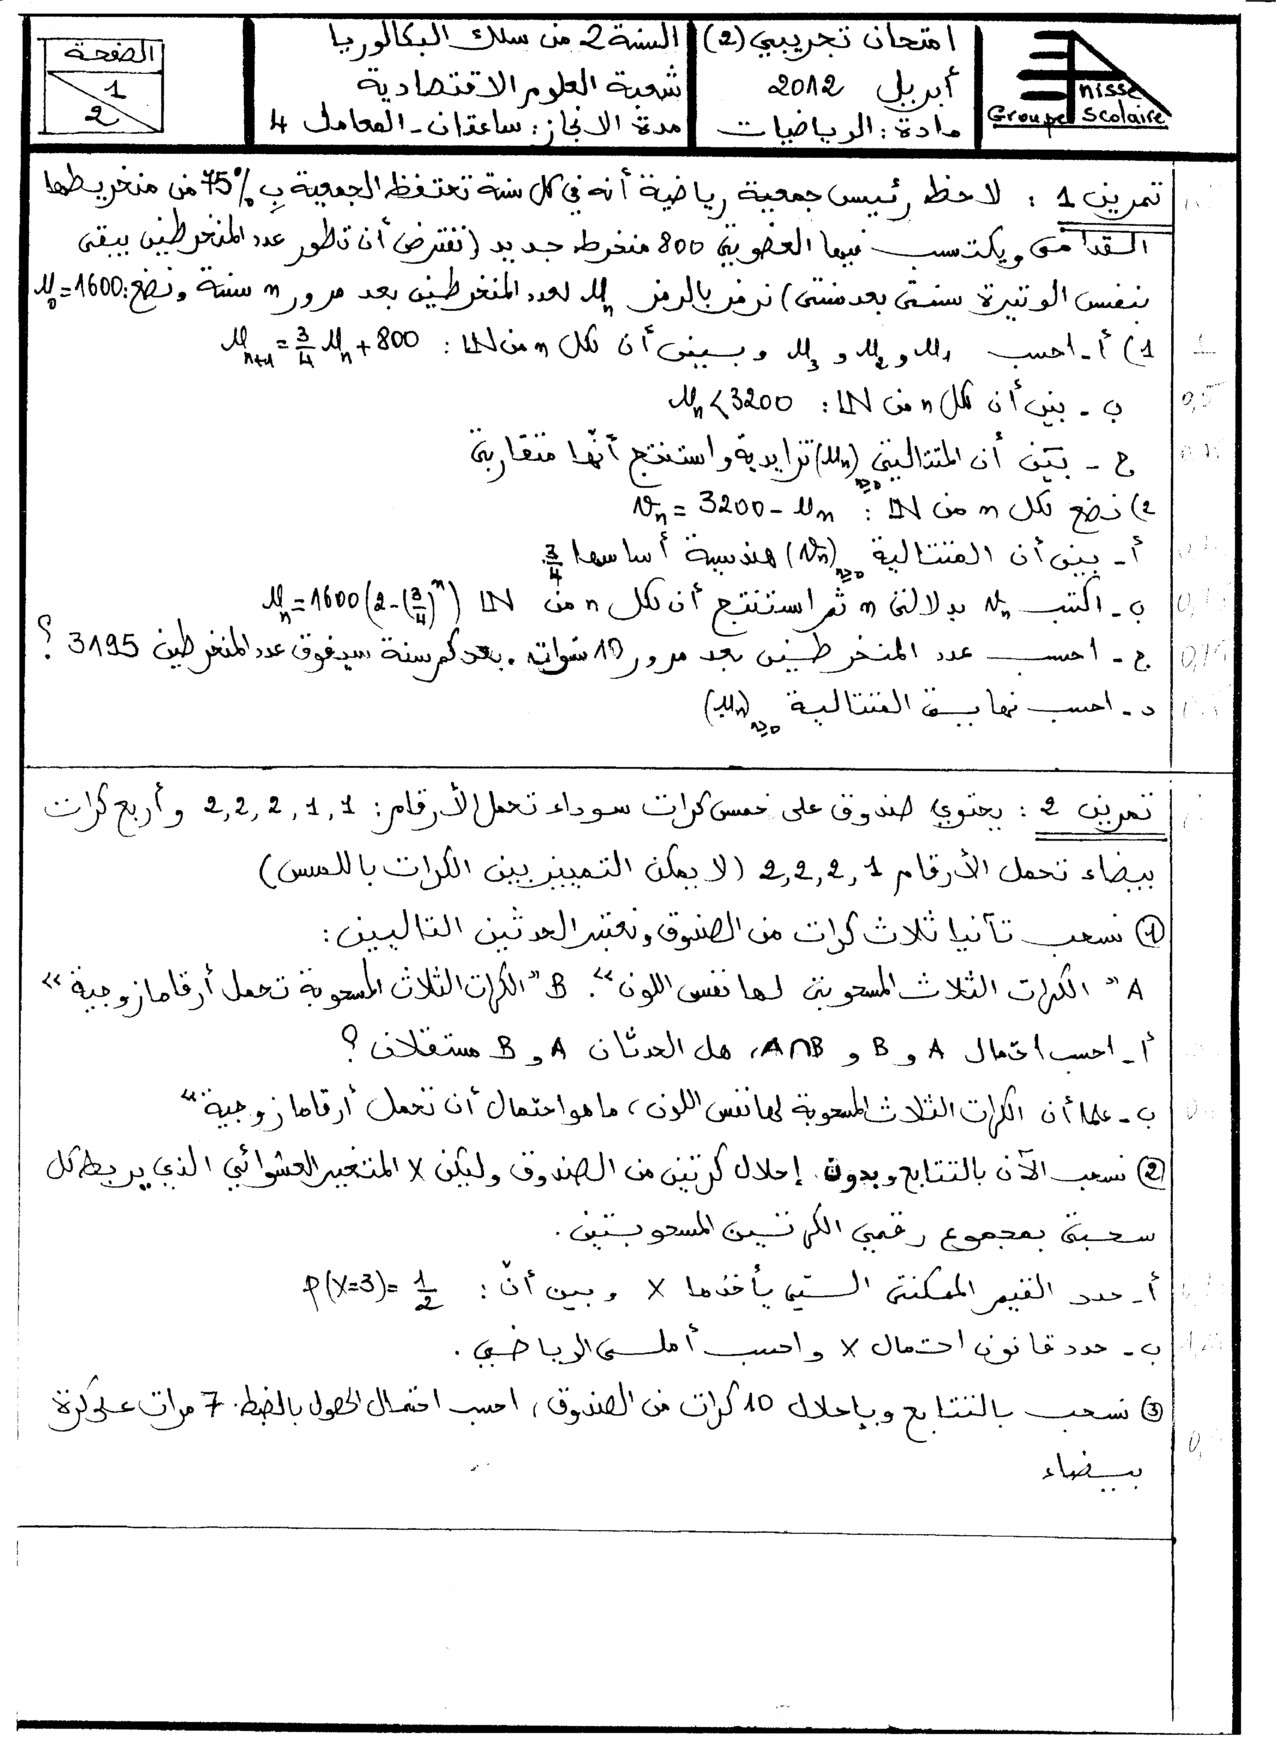 امتحان تجريبي (2)
أبريل 2012
مادة : الرياضيات
السنة 2 من سلك البكالوريا
شعبة العلوم الاقتصادية
مدة الانجاز : ساعتان - المعامل 4
الصفحة
1
2
nisse
Groupe Scolaire
تمرين 1 : لاحظ رئيس جمعية رياضية أنه في كل سنة تحتفظ الجمعية بِ 75% من منخريطها
القدامى ويكتسب فيها العضوية 800 منخرط جديد (نفترض أن تطور عدد المنخرطين يبقى
بنفس الوتيرة سنة بعد سنة) نرمز بالرمز uₙ لعدد المنخرطين بعد مرور n سنة ونضع: u₀=1600
1) أ - احسب u₁ و u₂ و u₃ وبين أن لكل n من IN : uₙ₊₁ = 3/4 uₙ + 800
1
ب - بين أن لكل n من IN : uₙ < 3200
0,5
ج - بيّن أن المتتالية (uₙ)ₙ≥₀ تزايدية واستنتج أنّها متقاربة
2) نضع لكل n من IN : vₙ = 3200 - uₙ
أ - بين أن المتتالية (vₙ)ₙ≥₀ هندسية أساسها 3/4
ب - اكتب vₙ بدلالة n ثم استنتج أن لكل n من IN uₙ = 1600(2-(3/4)ⁿ)
ج - احسب عدد المنخرطين بعد مرور 10 سنوات. بعد كم سنة سيفوق عدد المنخرطين 3195 ؟
0,75
د - احسب نهاية المتتالية (uₙ)ₙ≥₀
تمرين 2 : يحتوي صندوق على خمس كرات سوداء تحمل الأرقام : 1, 1, 2, 2, 2 وأربع كرات
بيضاء تحمل الأرقام 1, 2, 2, 2 (لا يمكن التمييز بين الكرات باللمس)
① نسحب تآنيا ثلاث كرات من الصندوق ونعتبر الحدثين التاليين :
A "الكرات الثلاث المسحوبة لها نفس اللون". B "الكرات الثلاث المسحوبة تحمل أرقاما زوجية"
أ - احسب احتمال A و B و A∩B، هل الحدثان A و B مستقلان ؟
ب - علما أن الكرات الثلاث المسحوبة لها نفس اللون، ما هو احتمال أن تحمل أرقاما زوجية"
② نسحب الآن بالتتابع وبدون إحلال كرتين من الصندوق وليكن X المتغير العشوائي الذي يربط كل
سحبة بمجموع رقمي الكرتين المسحوبتين.
أ - حدد القيم الممكنة التي يأخذها X وبين أنّ : P(X=3) = 1/2
ب - حدد قانون احتمال X واحسب أمله الرياضي.
③ نسحب بالتتابع وبإحلال 10 كرات من الصندوق، احسب احتمال الحصول بالضبط 7 مرات على كرة
بيضاء